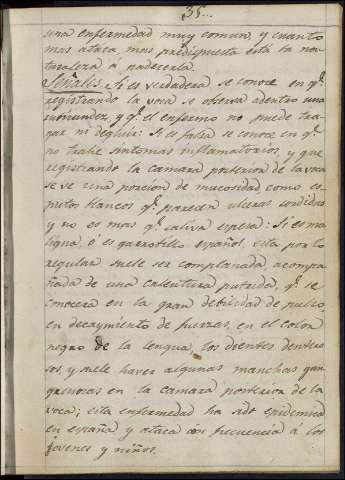 35...
una enfermedad muy comun, y cuanto
mas ataca, mas predispuesta está la na-
turaleza á padecerla.
Señales. Si es verdadera se conoce en q.e
registrando la voca se observa adentro una
q.e el enfermo no puede tra-
gar ni deglutir: Si es falsa se conoce en q.e
no trahe sintomas inflamatorios, y que
registrando la camara posterior de la voca
se ve una porcion de mucosidad como es-
putos blancos q.e parecen ulceras sordidas
y no es mas q.e saliva espesa: Si es ma-
ligna, ó es garrotillo español, esta por lo
regular suele ser complanada, acompa-
ñada de una calentura putrida, q.e se
conocera en la gran debilidad de pulso,
en decaymiento de fuerzas, en el color
negro de la lengua, los dientes
sos, y suele haver algunas manchas gan-
grenosas en la camara posterior de la
voca; esta enfermedad ha sido epidemica
en españa y ataca con frecuencia á los
jovenes y niños.